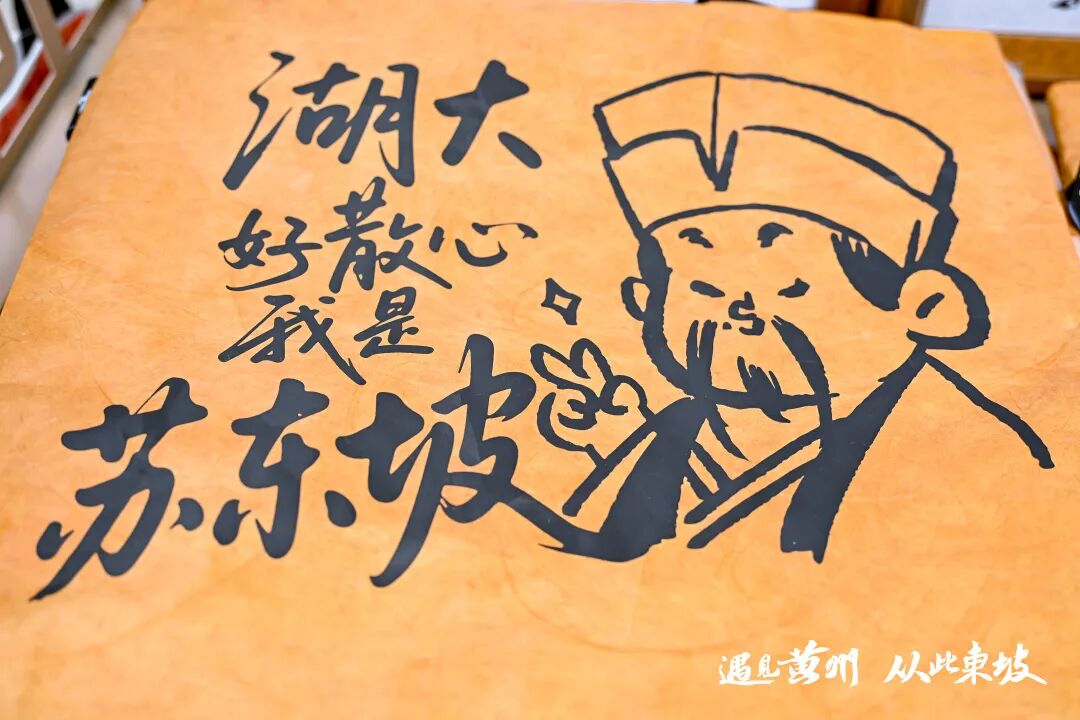 湖大
好散心
我是
苏东坡
遇见黄州 从此東坡